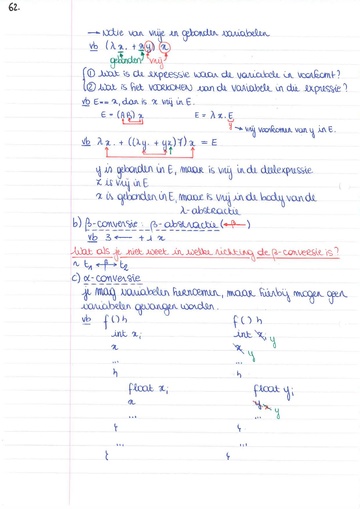 62.
→ notie van vrije en gebonden variabelen
vb (λx. + x y) x
gebonden vrij
① wat is de expressie waar de variabele in voorkomt?
② wat is het VOORKOMEN van de variabele in die expressie?
vb E == x, dan is x vrij in E.
E = (A B) x E = λx. E
y → vrij voorkomen van y in E.
vb λx. + ((λy. + yz) 7) x = E
y is gebonden in E, maar is vrij in de deelexpressie
z is vrij in E
x is gebonden in E, maar is vrij in de body van de
λ-abstractie
b) β-conversie: β-abstractie (←β)
vb 3 ← + 1 x
Wat als je niet weet in welke richting de β-conversie is?
~ t₁ ←β→ t₂
c) α-conversie
je mag variabelen hernoemen, maar hierbij mogen geen
variabelen gevangen worden.
vb f() { f() {
int x; int x, y
x x y
... ...
{ {
float x; float y;
x y x, y
... ...
} }
... ...
} }